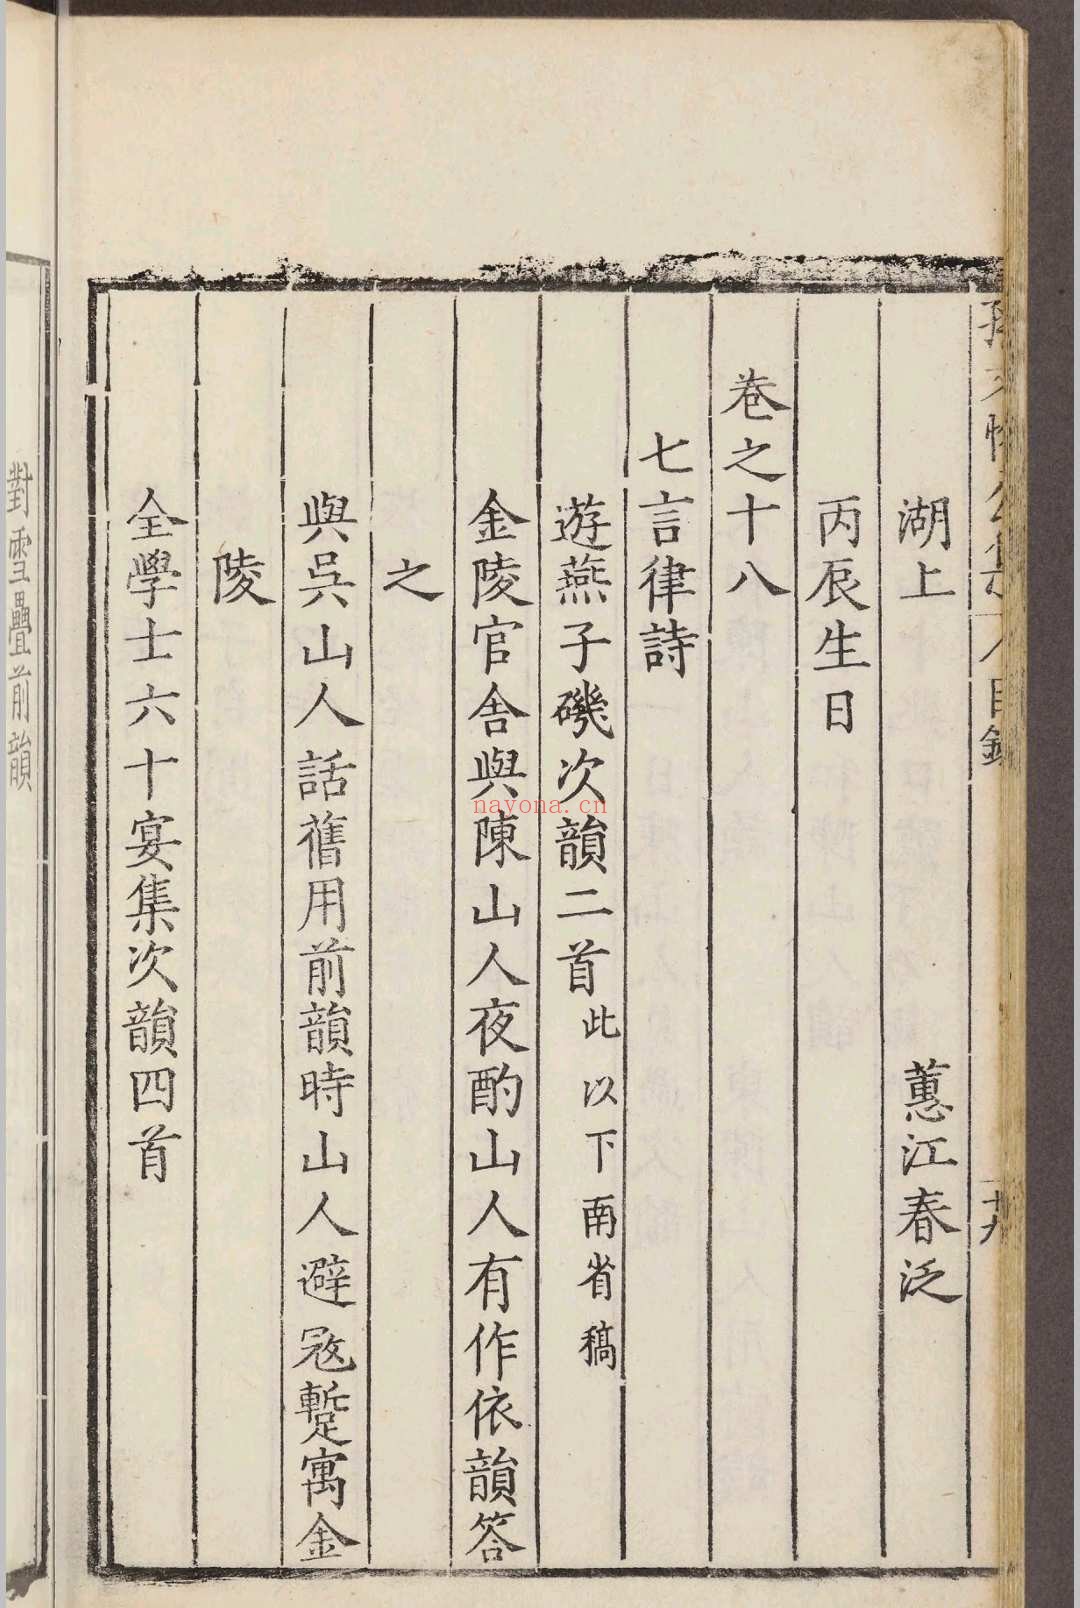 湖上　蕙江春泛
丙辰生日
卷之十八
七言律詩
遊燕子磯次韻二首此以下南省稿
金陵官舍與陳山人夜酌山人有作依韻答
之
與吳山人話舊用前韻時山人避寇蹔寓金
陵
全學士六十宴集次韻四首
對雪疊前韻
nayona.cn